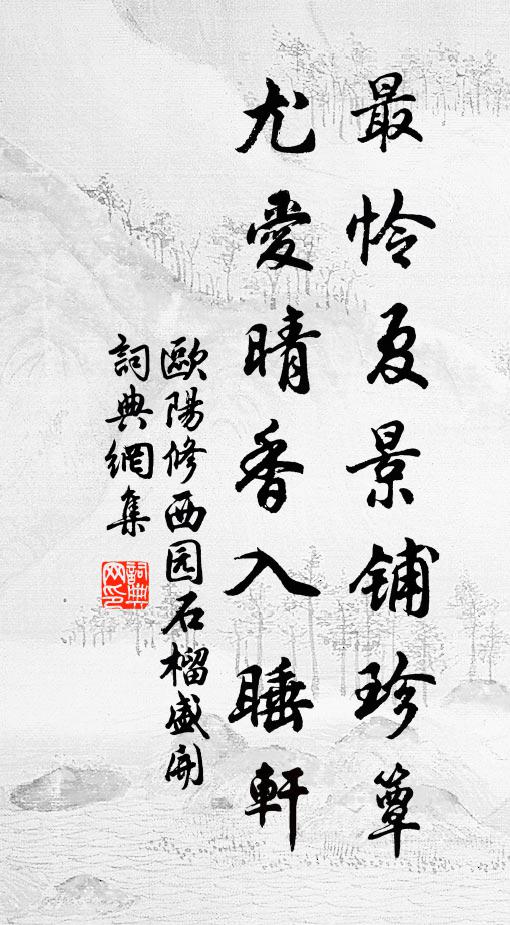 最怜夏景铺珍簟
尤愛晴香入睡軒
歐陽修西园石榴盛開
詞典網集
詞典网印